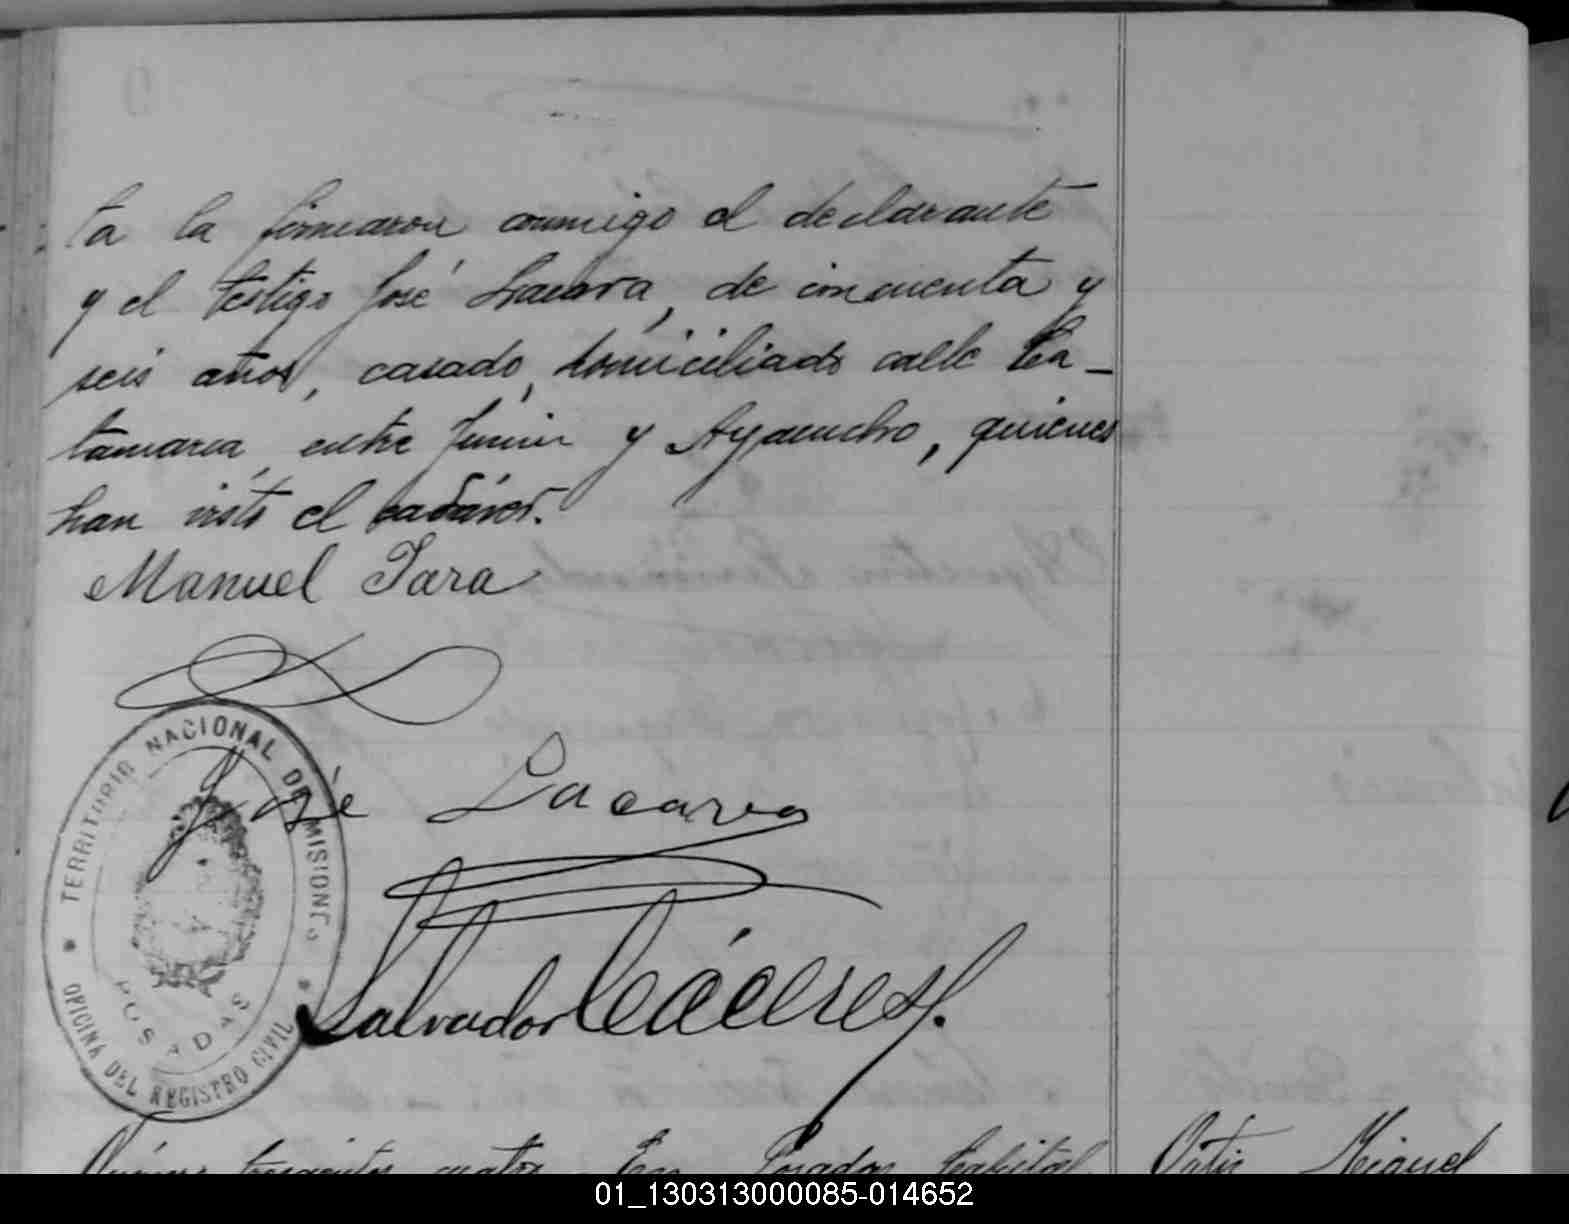 ta la firmaron conmigo el declarante
y el testigo José Lacava, de cincuenta y
seis años, casado, domiciliado calle Ca-
tamarca, entre Junin y Ayacucho, quienes
han visto el cadáver.
Manuel Jara
José Lacava
Salvador Cáceres
TERRITORIO NACIONAL DE MISIONES
POSADAS
OFICINA DEL REGISTRO CIVIL
Número trescientos cuatro. En Posadas Capital
Ortiz Miguel
01_130313000085-014652